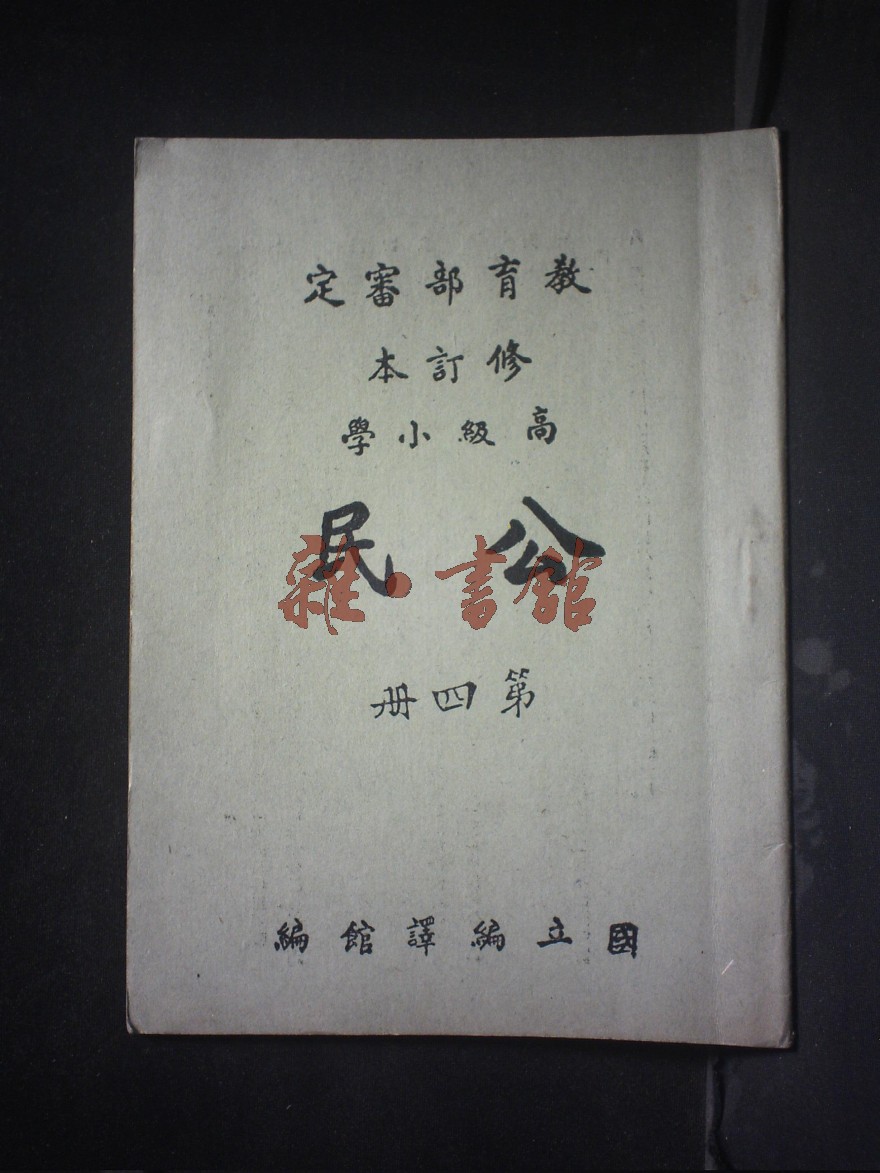 教育部審定
修訂本
高級小學
公民
雜·書館
第四册
國立編譯館編